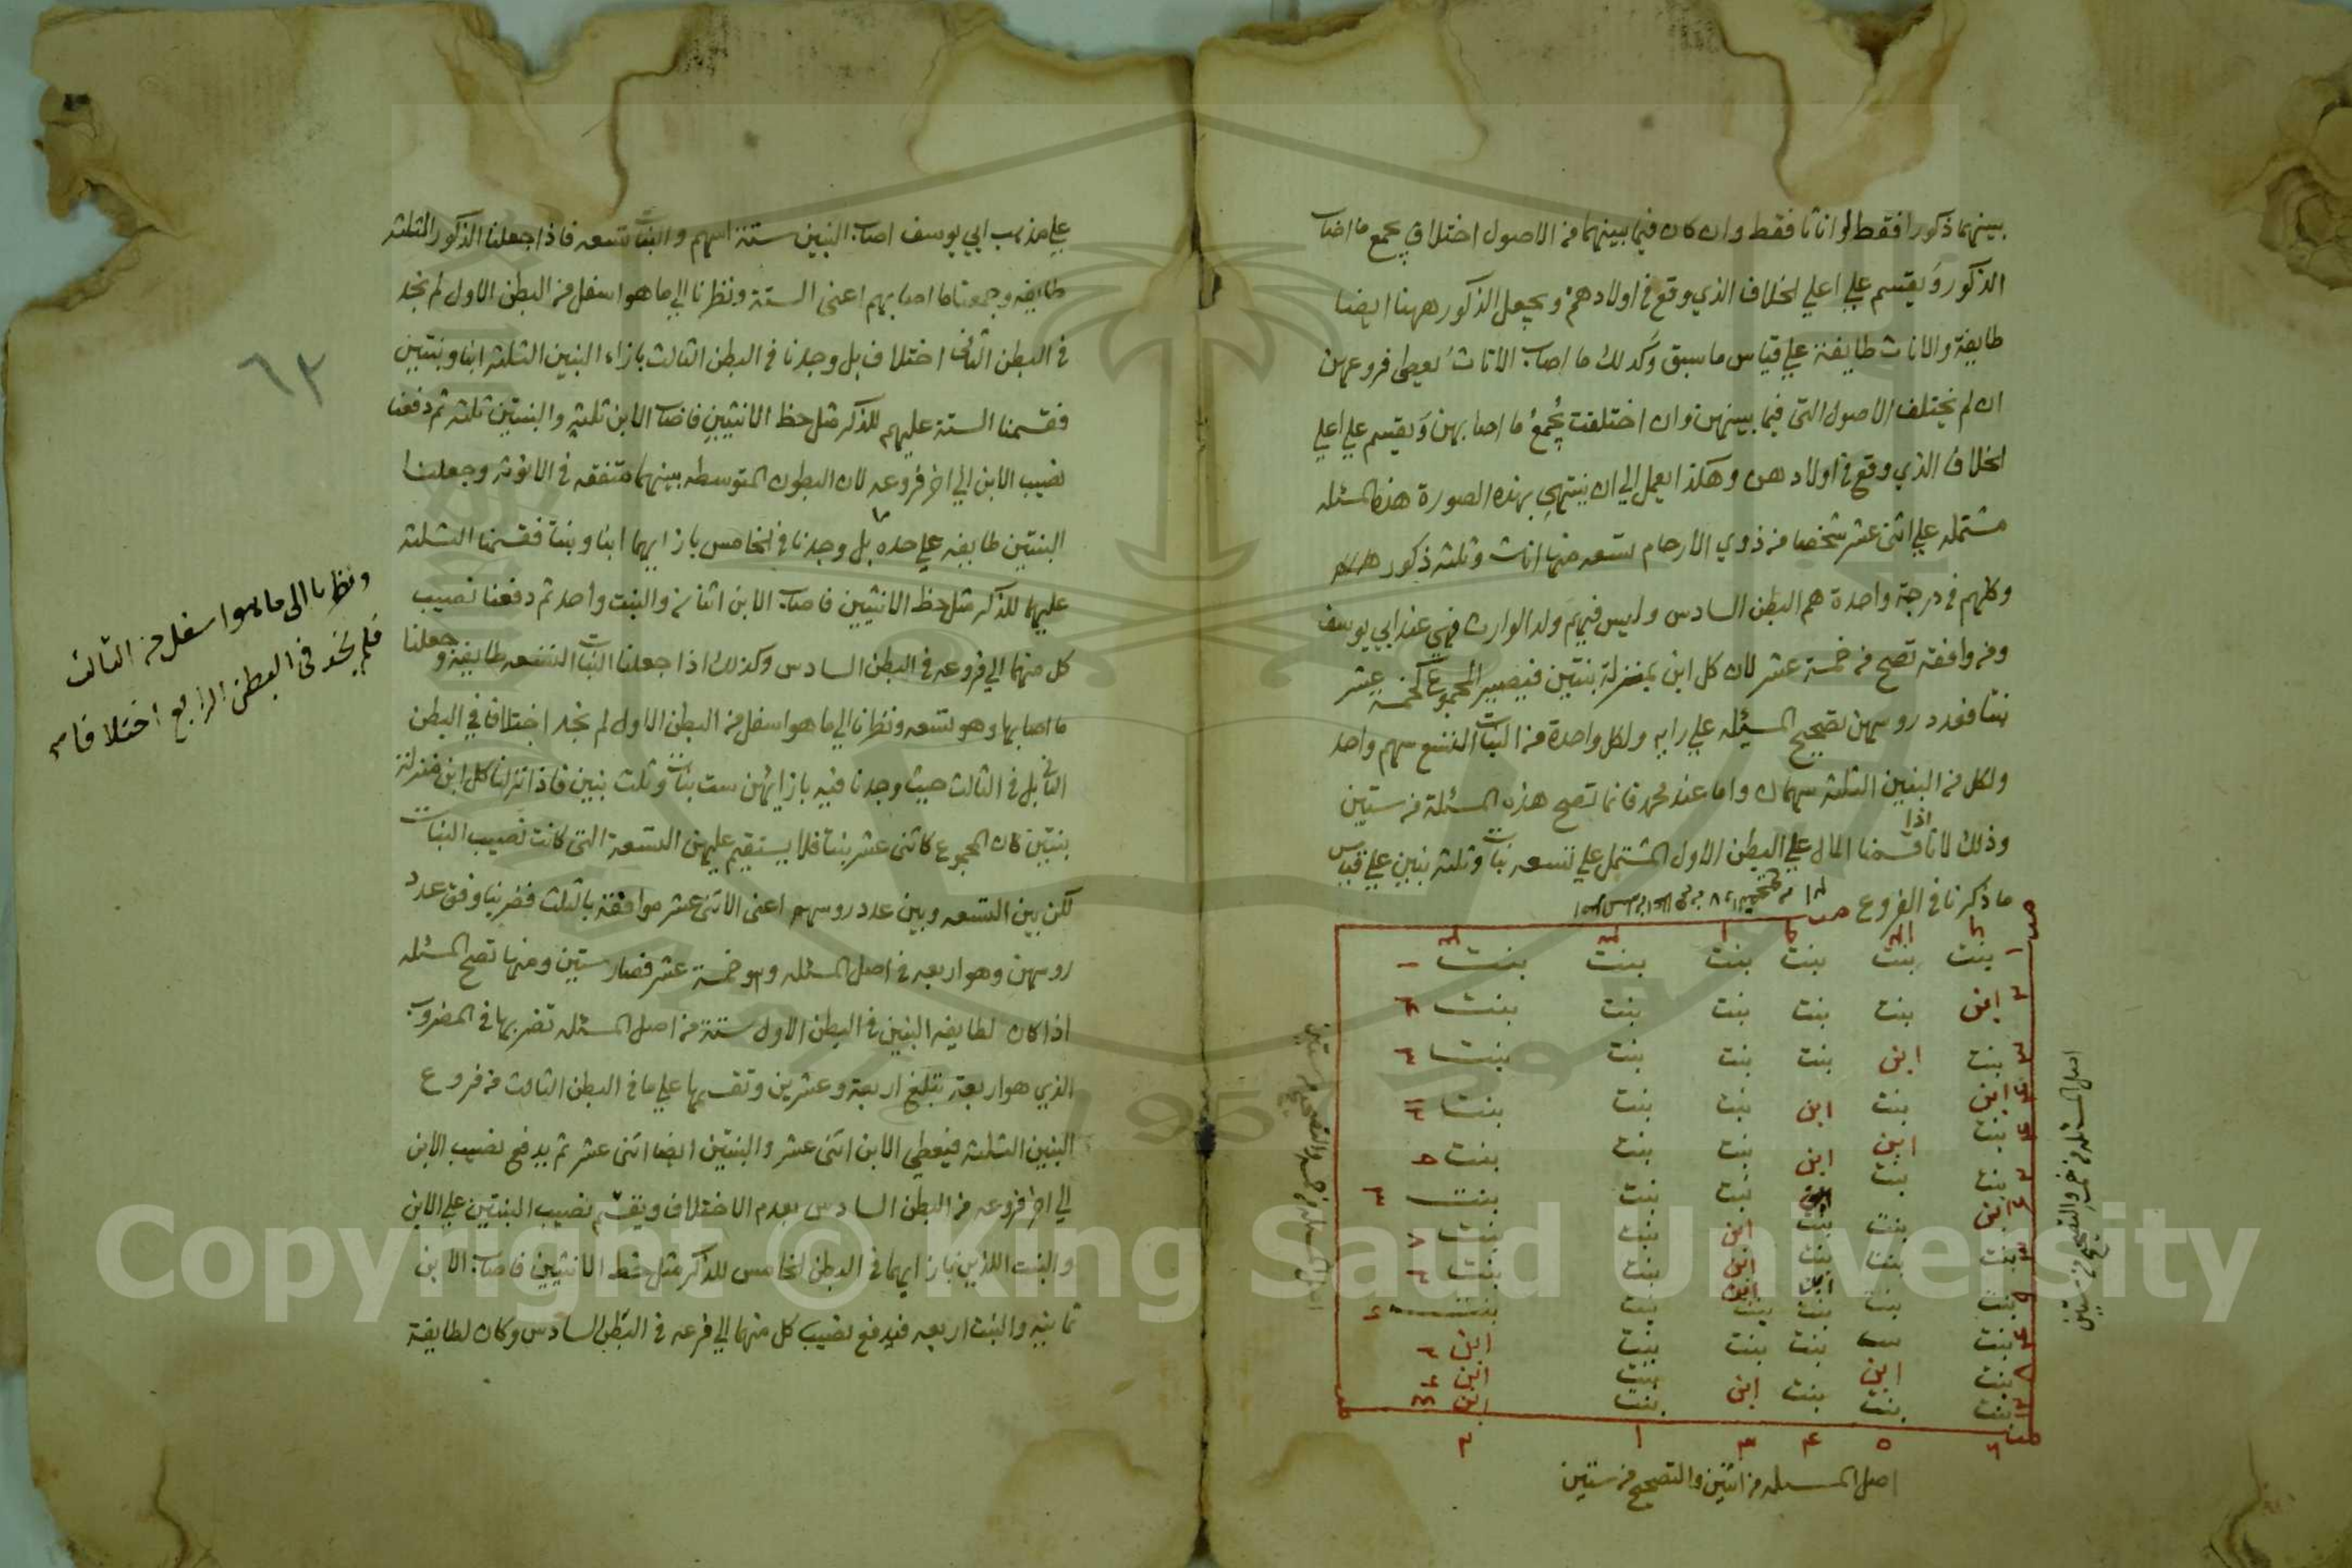 بينهما ذكورا فقط او اناثا فقط وان كان فيما بينهما من الاصول اختلاف يجمع ما اصاب
الذكور ويقسم علي اعلي الخلاف الذي وقع في اولادهم ويجعل الذكور ههنا ايضا
طايفة والاناث طايفة علي قياس ما سبق وكذلك ما اصاب الاناث يعطي فروعهن
ان لم يختلف الاصول التي فيما بينهن وان اختلفت يجمع ما اصابهن ويقسم علي اعلي
الخلاف الذي وقع في اولادهن وهكذا يعمل الي ان ينتهي بهذه الصورة هذه المسئله
مشتمله علي اثنى عشر شخصا من ذوي الارحام تسعه منها اناث وثلثه ذكور
وكلهم في درجة واحدة هم البطن السادس وليس فيهم ولد الوارث فهي عند ابي يوسف
ومن وافقه تصح من خمسة عشر لان كل ابن بمنزلة بنتين فيصير المجموع كخمسة عشر
بنتا فعدد روسهن تصحيح المسئله علي رايه ولكل واحدة من البنات التسع سهم واحد
ولكل من البنين الثلثه سهمان واما عند محمد فانما تصح هذه المسئلة من ستين
وذلك لانا اذا قسمنا المال علي البطن الاول المشتمل علي تسعه بنات وثلثه بنين علي قياس
ما ذكرنا في الفروع
بنت بنت بنت بنت بنت بنت ١
ابن بنت بنت بنت بنت بنت
بنت ابن بنت بنت بنت بنت
ابن بنت ابن بنت بنت بنت
بنت ابن ابن بنت بنت بنت
بنت بنت ابن بنت بنت بنت
ابن بنت بنت ابن بنت بنت ٧
بنت بنت بنت ابن بنت بنت
بنت بنت بنت بنت بنت بنت
بنت بنت بنت بنت ابن
بنت ابن بنت ابن بنت ابن
بنت بنت بنت ابن
اصل المسئله من اثنين والتصحيح من ستين
اصل المسئله من خمسة والتصحيح من ستين
علي مذهب ابي يوسف اصاب البنين ستة اسهم والبنات تسعه فاذا جعلنا الذكور الثلثه
طايفه وجمعنا ما اصابهم اعنى الستة ونظرنا الي ما هو اسفل من البطن الاول لم نجد
في البطن الثاني اختلاف بل وجدنا في البطن الثالث بازاء البنين الثلثه ابنا وبنتين
فقسمنا الستة عليهم للذكر مثل حظ الانثيين فاصاب الابن ثلثه والبنتين ثلثه ثم دفعنا
نصيب الابن الي اخر فروعه لان البطون المتوسطه بينهما متفقه في الانوثه وجعلنا
البنتين طايفه علي حده بل وجدنا في الخامس بازايهما ابنا وبنتا فقسمنا الثلثه
عليهما للذكر مثل حظ الانثيين فاصاب الابن اثنان والبنت واحد ثم دفعنا نصيب
كل منهما الي فروعه في البطن السادس وكذلك اذا جعلنا البنات التسعه طايفه وجعلنا
ما اصابها وهو تسعه ونظرنا الي ما هو اسفل من البطن الاول لم نجد اختلافا في البطن
الثاني بل في الثالث حيث وجدنا فيه بازائهن ست بنات وثلث بنين فاذا نزلنا كل ابن منزلة
بنتين كان المجموع كاثنى عشر بنتا فلا يستقيم عليهن التسعة التى كانت نصيب البنات
لكن بين التسعه وبين عدد روسهم اعنى الاثنى عشر موافقة بالثلث فضربنا وفق عدد
روسهن وهو اربعه في اصل المسئله وهو خمسة عشر فصار ستين ومنها تصح المسئله
اذا كان لطايفه البنين في البطن الاول ستة من اصل المسئله تضربها في المضروب
الذي هو اربعة تبلغ اربعة وعشرين وتقسمها علي ما في البطن الثالث من فروع
البنين الثلثه فيعطي الابن اثنى عشر والبنتين ايضا اثنى عشر ثم يدفع نصيب الابن
الي اخر فروعه من البطن السادس بعدم الاختلاف ويقسم نصيب البنتين علي الابن
والبنت اللذين بازايهما في البطن الخامس للذكر مثل حظ الانثيين فاصاب الابن
ثمانيه والبنت اربعه فيدفع نصيب كل منهما الي فرعه في البطن السادس وكان لطايفة
٦٣
ونظرنا الى ما هو اسفل من الثالث
فلم نجد في البطن الرابع اختلافا
Copyright © King Saud University
1957